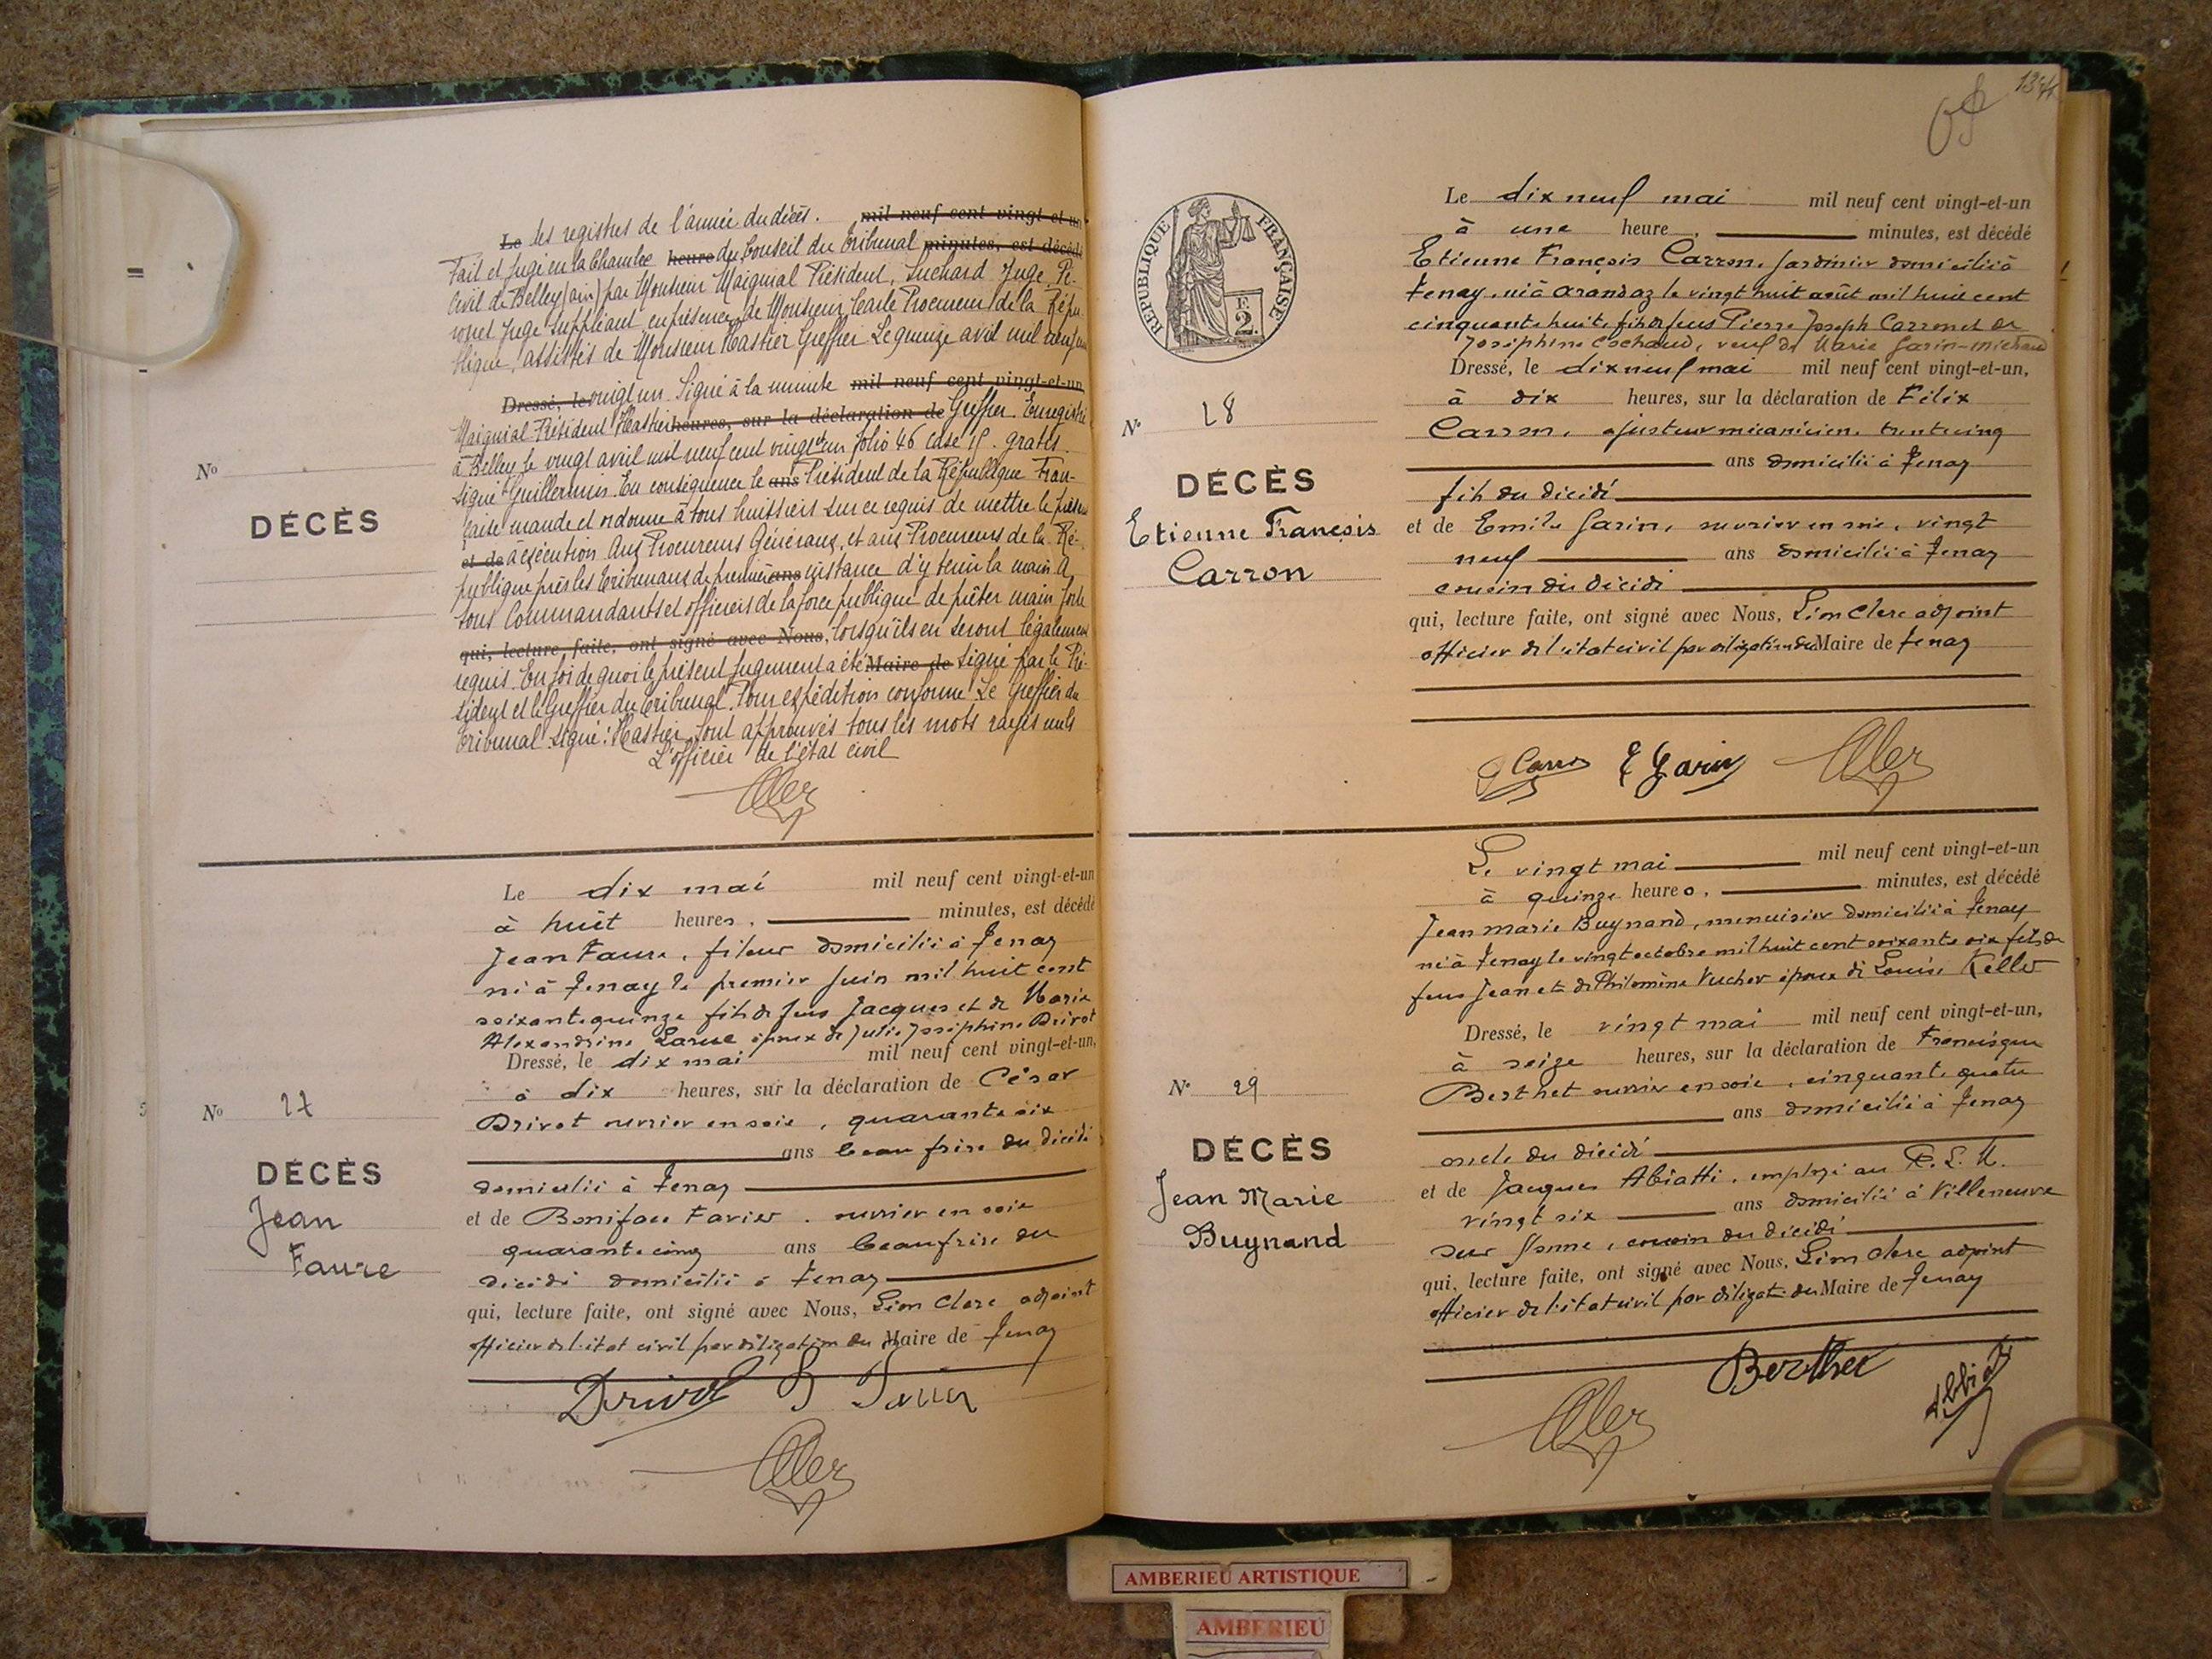 Le les registres de l'année du décès. mil neuf cent vingt-et-un
Fait et jugé en la Chambre heure du Conseil du Tribunal minutes, est décédé
Civil de Belley (ain) par Monsieur Maignial Président, Suchard Juge, Pi-
ronet Juge Suppléant en présence de Monsieur Carle Procureur de la Répu-
blique, assistés de Monsieur Hastier Greffier Le quinze avril mil neuf cent
Dressé, le vingt un Signé à la minute mil neuf cent vingt-et-un
Maignial Président Hastier heures, sur la déclaration de Greffier. Enregistré
à Belley le vingt avril mil neuf cent vingt et un folio 46 case 15. gratis.
Signé Guillermin. En conséquence le ans Président de la République Fran-
çaise mande et ordonne à tous huissiers sur ce requis de mettre le présent
et de à exécution Aux Procureurs Généraux, et aux Procureurs de la Ré-
publique près les Tribunaux de première ans instance d'y tenir la main A
tous Commandants et officiers de la force publique de prêter main forte
qui, lecture faite, ont signé avec Nous, lorsqu'ils en seront légalement
requis. En foi de quoi le présent jugement a été Maire de signé par le Pré-
sident et le Greffier du Tribunal. Pour expédition conforme Le Greffier du
Tribunal Signé: Hastier Sont approuvés tous les mots rayés nuls
L'officier de l'état civil
No
DÉCÈS
Le dix mai mil neuf cent vingt-et-un
à huit heures, minutes, est décédé
Jean Faure, fileur domicilié à Tenay
né à Tenay le premier juin mil huit cent
soixante quinze fils de feus Jacques et de Marie
Alexandrine Larue époux de Julie Joséphine Drivot
Dressé, le dix mai mil neuf cent vingt-et-un,
à dix heures, sur la déclaration de César
Drivot ouvrier en soie, quarante six
ans beau frère du décédé
domicilié à Tenay
et de Boniface Favier, ouvrier en soie
quarante cinq ans beau frère du
décédé domicilié à Tenay
qui, lecture faite, ont signé avec Nous, Léon Clerc adjoint
officier de l'état civil par délégation du Maire de Tenay
Drivot
No 27
DÉCÈS
Jean
Faure
134
RÉPUBLIQUE FRANÇAISE
E
2
Le dix neuf mai mil neuf cent vingt-et-un
à une heure, minutes, est décédé
Etienne François Carron, jardinier domicilié à
Tenay, né à Arandaz le vingt huit août mil huit cent
cinquante huit, fils de feus Pierre Joseph Carron et de
Joséphine Cochaud, veuf de Marie Garin-michaud
Dressé, le dix neuf mai mil neuf cent vingt-et-un,
à dix heures, sur la déclaration de Félix
Carron, ajusteur mécanicien, trente cinq
ans domicilié à Tenay
fils du décédé
et de Emile Garin, ouvrier en soie, vingt
neuf ans domicilié à Tenay
cousin du décédé
qui, lecture faite, ont signé avec Nous, Léon Clerc adjoint
officier de l'état civil par délégation du Maire de Tenay
E Garin
No 28
DÉCÈS
Etienne François
Carron
Le vingt mai mil neuf cent vingt-et-un
à quinze heures, minutes, est décédé
Jean marie Buynand, menuisier domicilié à Tenay
né à Tenay le vingt octobre mil huit cent soixante six fils de
feus Jean et de Philomène Vucher époux de Louise Keller
Dressé, le vingt mai mil neuf cent vingt-et-un,
à seize heures, sur la déclaration de Francisque
Berthet ouvrier en soie, cinquante quatre
ans domicilié à Tenay
oncle du décédé
et de Jacques Abiatti, employé au P. L. M.
vingt six ans domicilié à Villeneuve
sur Yonne, cousin du décédé
qui, lecture faite, ont signé avec Nous, Léon Clerc adjoint
officier de l'état civil par délégat. du Maire de Tenay
Berthet
No 29
DÉCÈS
Jean Marie
Buynand
AMBERIEU ARTISTIQUE
AMBERIEU